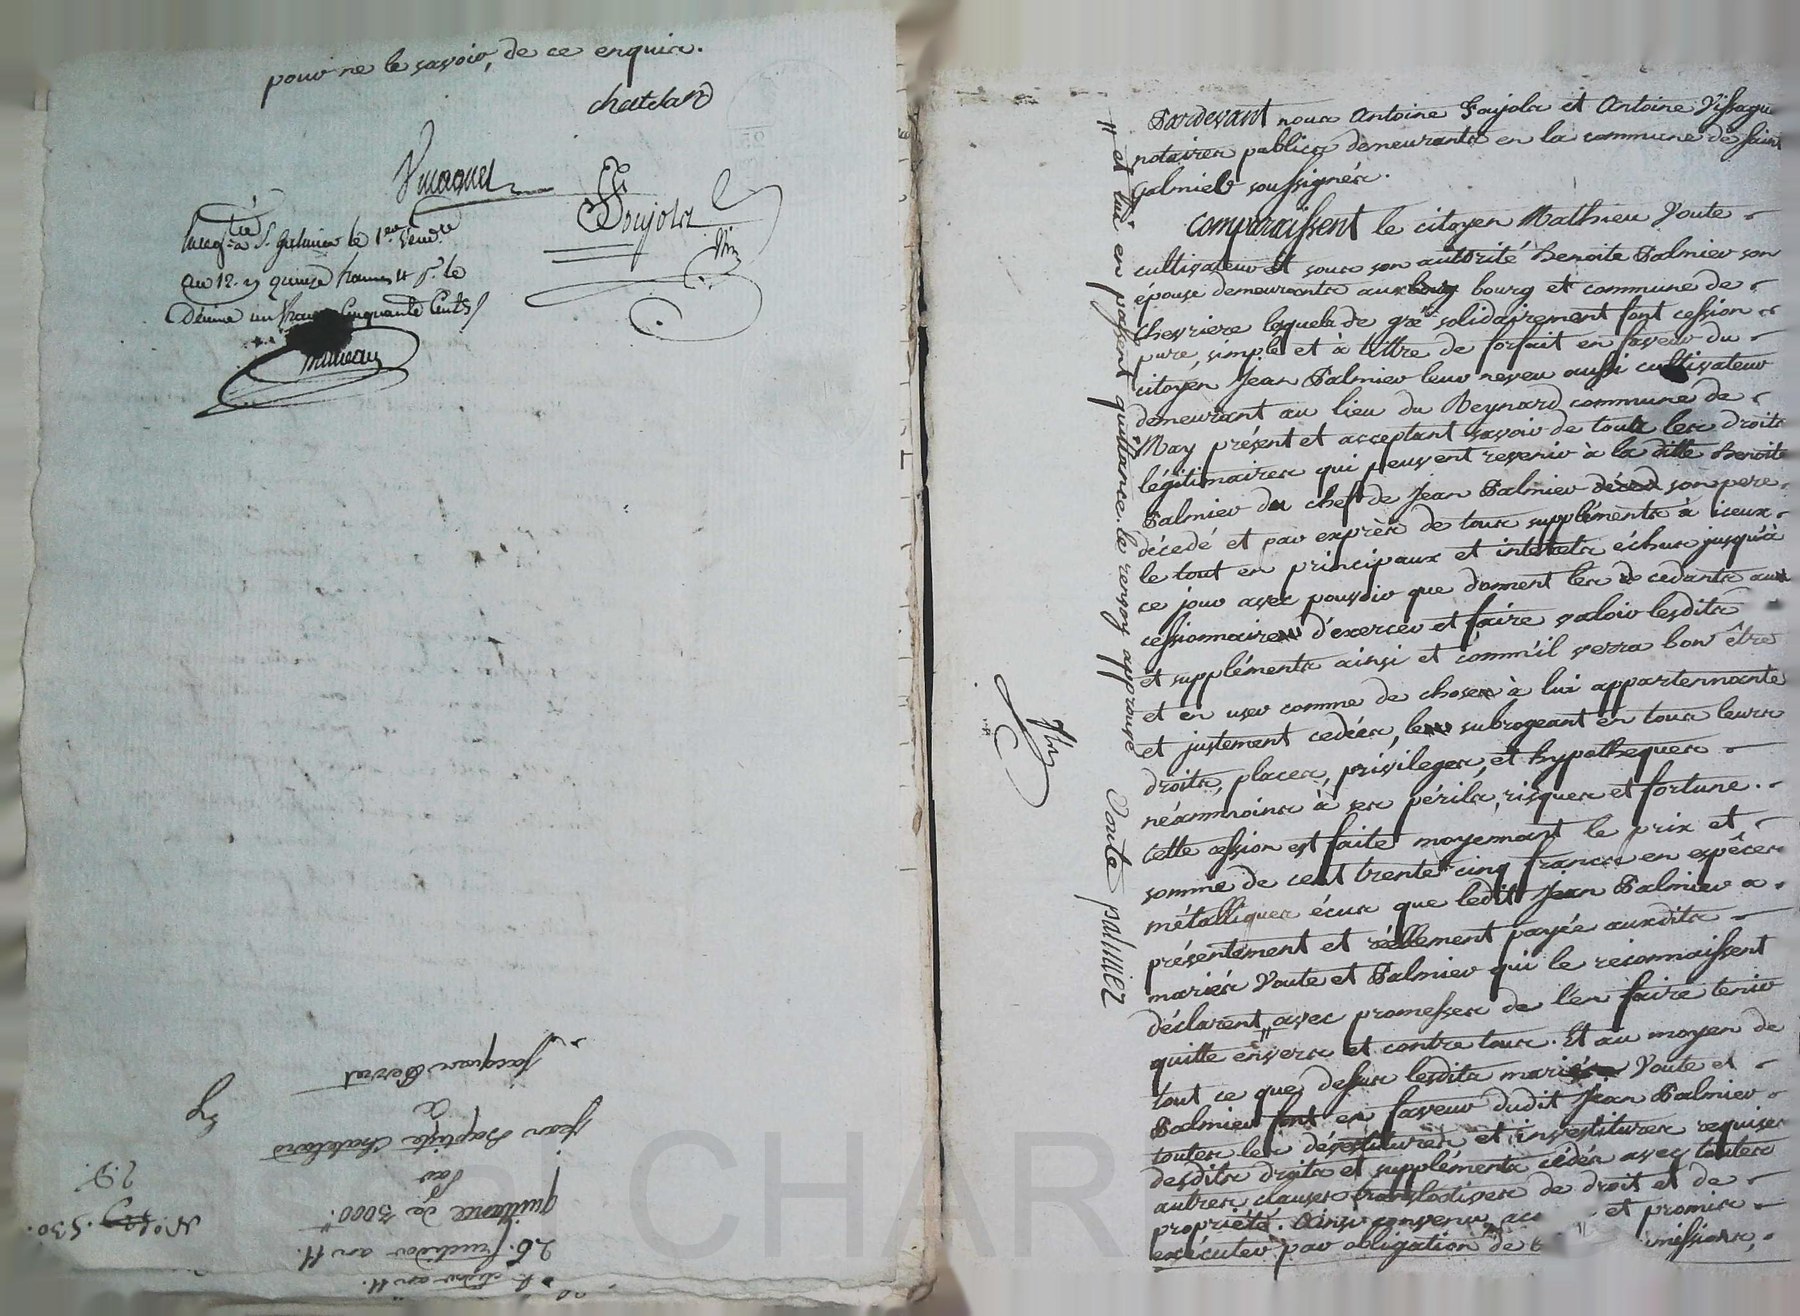 pour ne le savoir, de ce enquir.
chatelard
Soujola
à St Galmier le 1er Vendre
an 12. quinze francs
Décime un franc cinquante Cents
Jacques
Jean Baptiste Chatelard
par
quittance de 3000#
26. fructidor an 11.
an 11.
N° 530.
Pardevant nous Antoine Soujola et Antoine Vissaguet
notaires publics demeurants en la commune de Saint
Galmier soussignés.
Comparaissent le citoyen Mathieu Voute
cultivateur et sous son autorité Benoite Palmier son
épouse demeurants aux bourg et commune de
Chevriere lesquels de gré solidairement font cession
pure, simple et à tittre de forfait en faveur du
citoyen Jean Palmier leur neveu aussi cultivateur
demeurant au lieu du Reynard commune de
May présent et acceptant savoir de touts les droits
légitimaires qui peuvent revenir à la ditte Benoite
Palmier du chef de Jean Palmier son pere
décedé et par exprès de tous suppléments à iceux
le tout en principaux et interets échus jusqu'à
ce jour avec pouvoir que donnent les cedants au
cessionnaire d'exercer et faire valoir lesdits
et suppléments ainsi et comm'il verra bon être
et en user comme de choses à lui appartennante
et justement cedées, le subrogeant en tous leurs
droits, places, privileges, et hypotheques
néammoins à ses périls, risques et fortune.
Cette cession est faite moyennant le prix et
somme de cent trente cinq francs en espèces
métalliques écus que ledit Jean Palmier a
présentement et réellement payée auxdits
mariés Voute et Palmier qui le reconnaissent
déclarent " avec promesses de l'en faire tenir
quitte envers et contre tous. Et au moyen de
tout ce que dessus lesdits mariés Voute et
Palmier font en faveur dudit Jean Palmier
toutes les dévestitures et investitures requises
desdits droits et suppléments cédés avec toutes
autres clauses translatives de droit et de
propriété. Ainsi convenu et promis
exécuter par obligation de missions,
" et lui en passent quittance. le renvoy approuvé
Voute palmier
CHAR